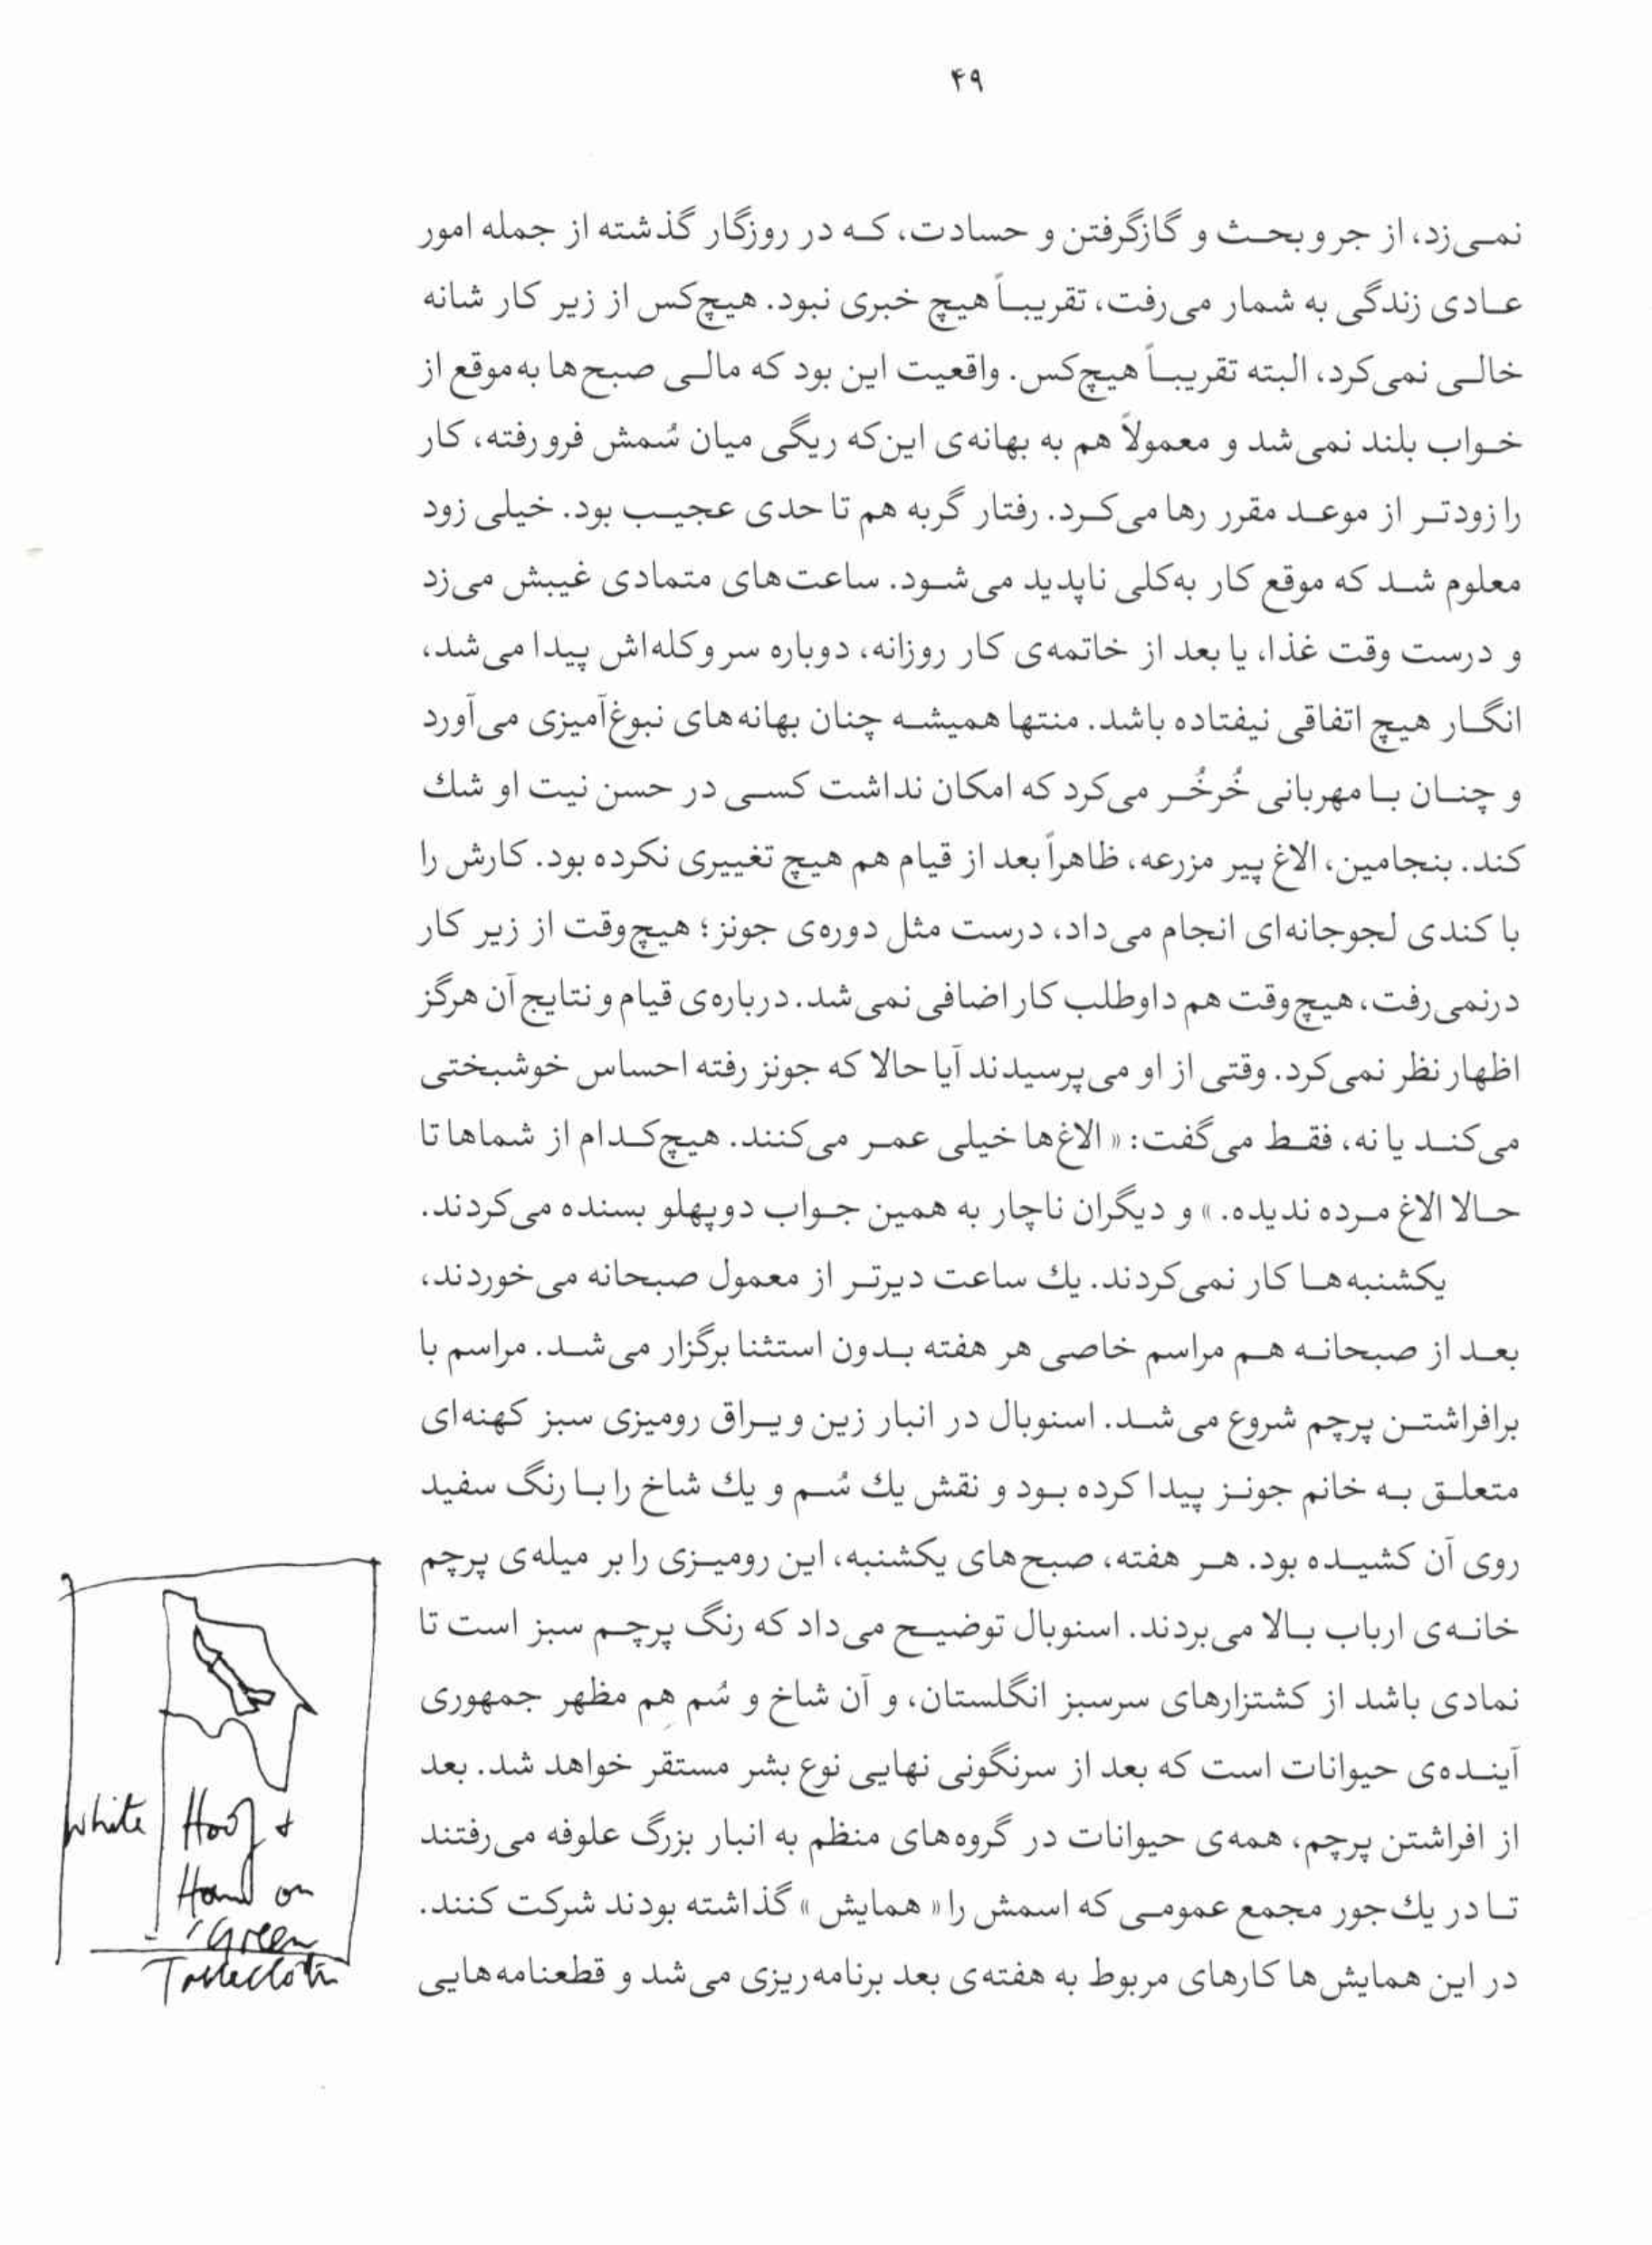 ۴۹
نمی‌زد، از جر و بحث و گازگرفتن و حسادت، که در روزگار گذشته از جمله امور
عادی زندگی به شمار می‌رفت، تقریباً هیچ خبری نبود. هیچ‌کس از زیر کار شانه
خالی نمی‌کرد، البته تقریباً هیچ‌کس. واقعیت این بود که مالی صبح‌ها به‌موقع از
خواب بلند نمی‌شد و معمولاً هم به بهانه‌ی این‌که ریگی میان سُمش فرو رفته، کار
را زودتر از موعد مقرر رها می‌کرد. رفتار گربه هم تا حدی عجیب بود. خیلی زود
معلوم شد که موقع کار به‌کلی ناپدید می‌شود. ساعت‌های متمادی غیبش می‌زد
و درست وقت غذا، یا بعد از خاتمه‌ی کار روزانه، دوباره سر و کله‌اش پیدا می‌شد،
انگار هیچ اتفاقی نیفتاده باشد. منتها همیشه چنان بهانه‌های نبوغ‌آمیزی می‌آورد
و چنان با مهربانی خُرخُر می‌کرد که امکان نداشت کسی در حسن نیت او شك
کند. بنجامین، الاغ پیر مزرعه، ظاهراً بعد از قیام هم هیچ تغییری نکرده بود. کارش را
با کندی لجوجانه‌ای انجام می‌داد، درست مثل دوره‌ی جونز؛ هیچ‌وقت از زیر کار
درنمی‌رفت، هیچ‌وقت هم داوطلب کار اضافی نمی‌شد. درباره‌ی قیام و نتایج آن هرگز
اظهار نظر نمی‌کرد. وقتی از او می‌پرسیدند آیا حالا که جونز رفته احساس خوشبختی
می‌کند یا نه، فقط می‌گفت: « الاغ‌ها خیلی عمر می‌کنند. هیچ‌کدام از شماها تا
حالا الاغ مرده ندیده. » و دیگران ناچار به همین جواب دوپهلو بسنده می‌کردند.
یکشنبه‌ها کار نمی‌کردند. یك ساعت دیرتر از معمول صبحانه می‌خوردند،
بعد از صبحانه هم مراسم خاصی هر هفته بدون استثنا برگزار می‌شد. مراسم با
برافراشتن پرچم شروع می‌شد. اسنوبال در انبار زین و یراق رومیزی سبز کهنه‌ای
متعلق به خانم جونز پیدا کرده بود و نقش یك سُم و یك شاخ را با رنگ سفید
روی آن کشیده بود. هر هفته، صبح‌های یکشنبه، این رومیزی را بر میله‌ی پرچم
خانه‌ی ارباب بالا می‌بردند. اسنوبال توضیح می‌داد که رنگ پرچم سبز است تا
نمادی باشد از کشتزارهای سرسبز انگلستان، و آن شاخ و سُم هم مظهر جمهوری
آینده‌ی حیوانات است که بعد از سرنگونی نهایی نوع بشر مستقر خواهد شد. بعد
از افراشتن پرچم، همه‌ی حیوانات در گروه‌های منظم به انبار بزرگ علوفه می‌رفتند
تا در یك جور مجمع عمومی که اسمش را « همایش » گذاشته بودند شرکت کنند.
در این همایش‌ها کارهای مربوط به هفته‌ی بعد برنامه‌ریزی می‌شد و قطعنامه‌هایی
white Hoof +
on
Green
Tablecloth